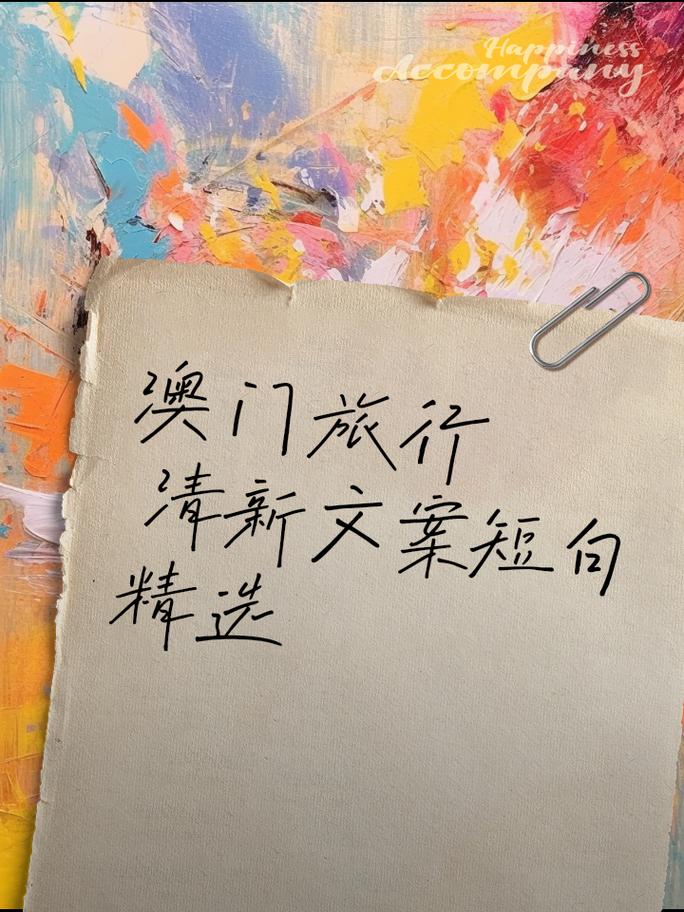 Happiness
Accompany
澳门旅行
清新文案短句
精选